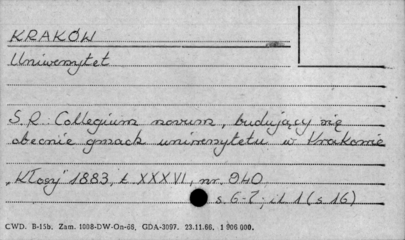 KRAKÓW
Uniwersytet
S.R. Collegium novum, budujący się
obecnie gmach uniwersytetu w Krakowie
„Kłosy" 1883, t. XXXVI, nr. 940
s. 6-7; il. 1 (s 16)
CWD. B-15b. Zam. 1008-DW-On-66, GDA-3097. 23.11.66. 1 906 000.